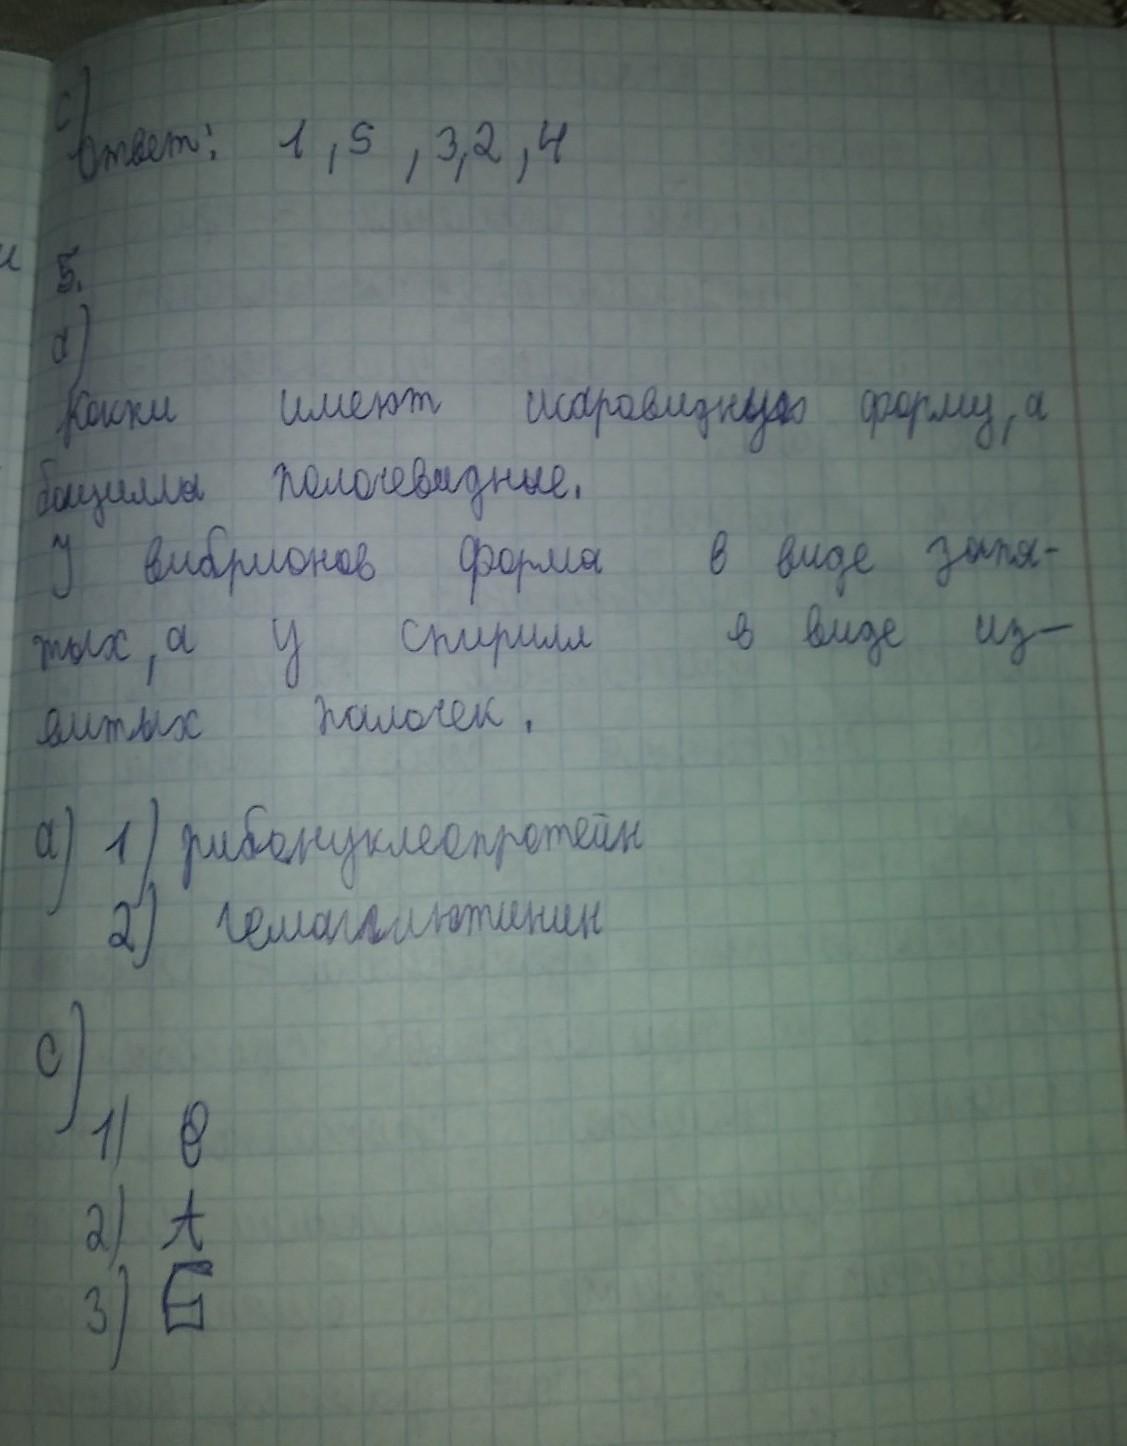 c)
Ответ: 1, 5, 3, 2, 4
5.
a)
Кокки имеют шаровидную форму, а
бациллы палочевидные.
У вибрионов форма в виде запя-
тых, а у спирилл в виде из-
витых палочек.
a) 1) рибонуклеопротеин
2) гемагглютинин
c)
1) В
2) А
3) Б